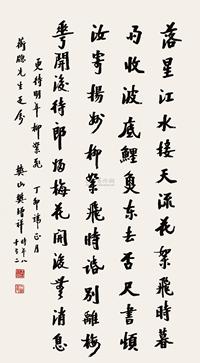 落星江水接天流花絮飛時暮
雨收波底鯉魚東去否尺書煩
汝寄揚州柳絮飛時話別離梅
花開後待郎歸梅花開後無消息
更待明年柳絮飛 丁卯正月
先生正 樊山樊增祥時年八十有二